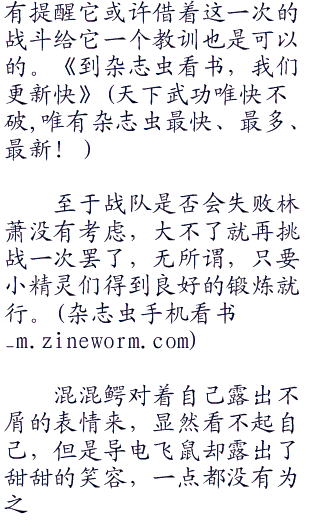 有提醒它或许借着这一次的
战斗给它一个教训也是可以
的。《到杂志虫看书，我们
更新快》(天下武功唯快不
破,唯有杂志虫最快、最多、
最新！)
至于战队是否会失败林
萧没有考虑，大不了就再挑
战一次罢了，无所谓，只要
小精灵们得到良好的锻炼就
行。(杂志虫手机看书
-m.zineworm.com)
混混鳄对着自己露出不
屑的表情来，显然看不起自
己，但是导电飞鼠却露出了
甜甜的笑容，一点都没有为
之